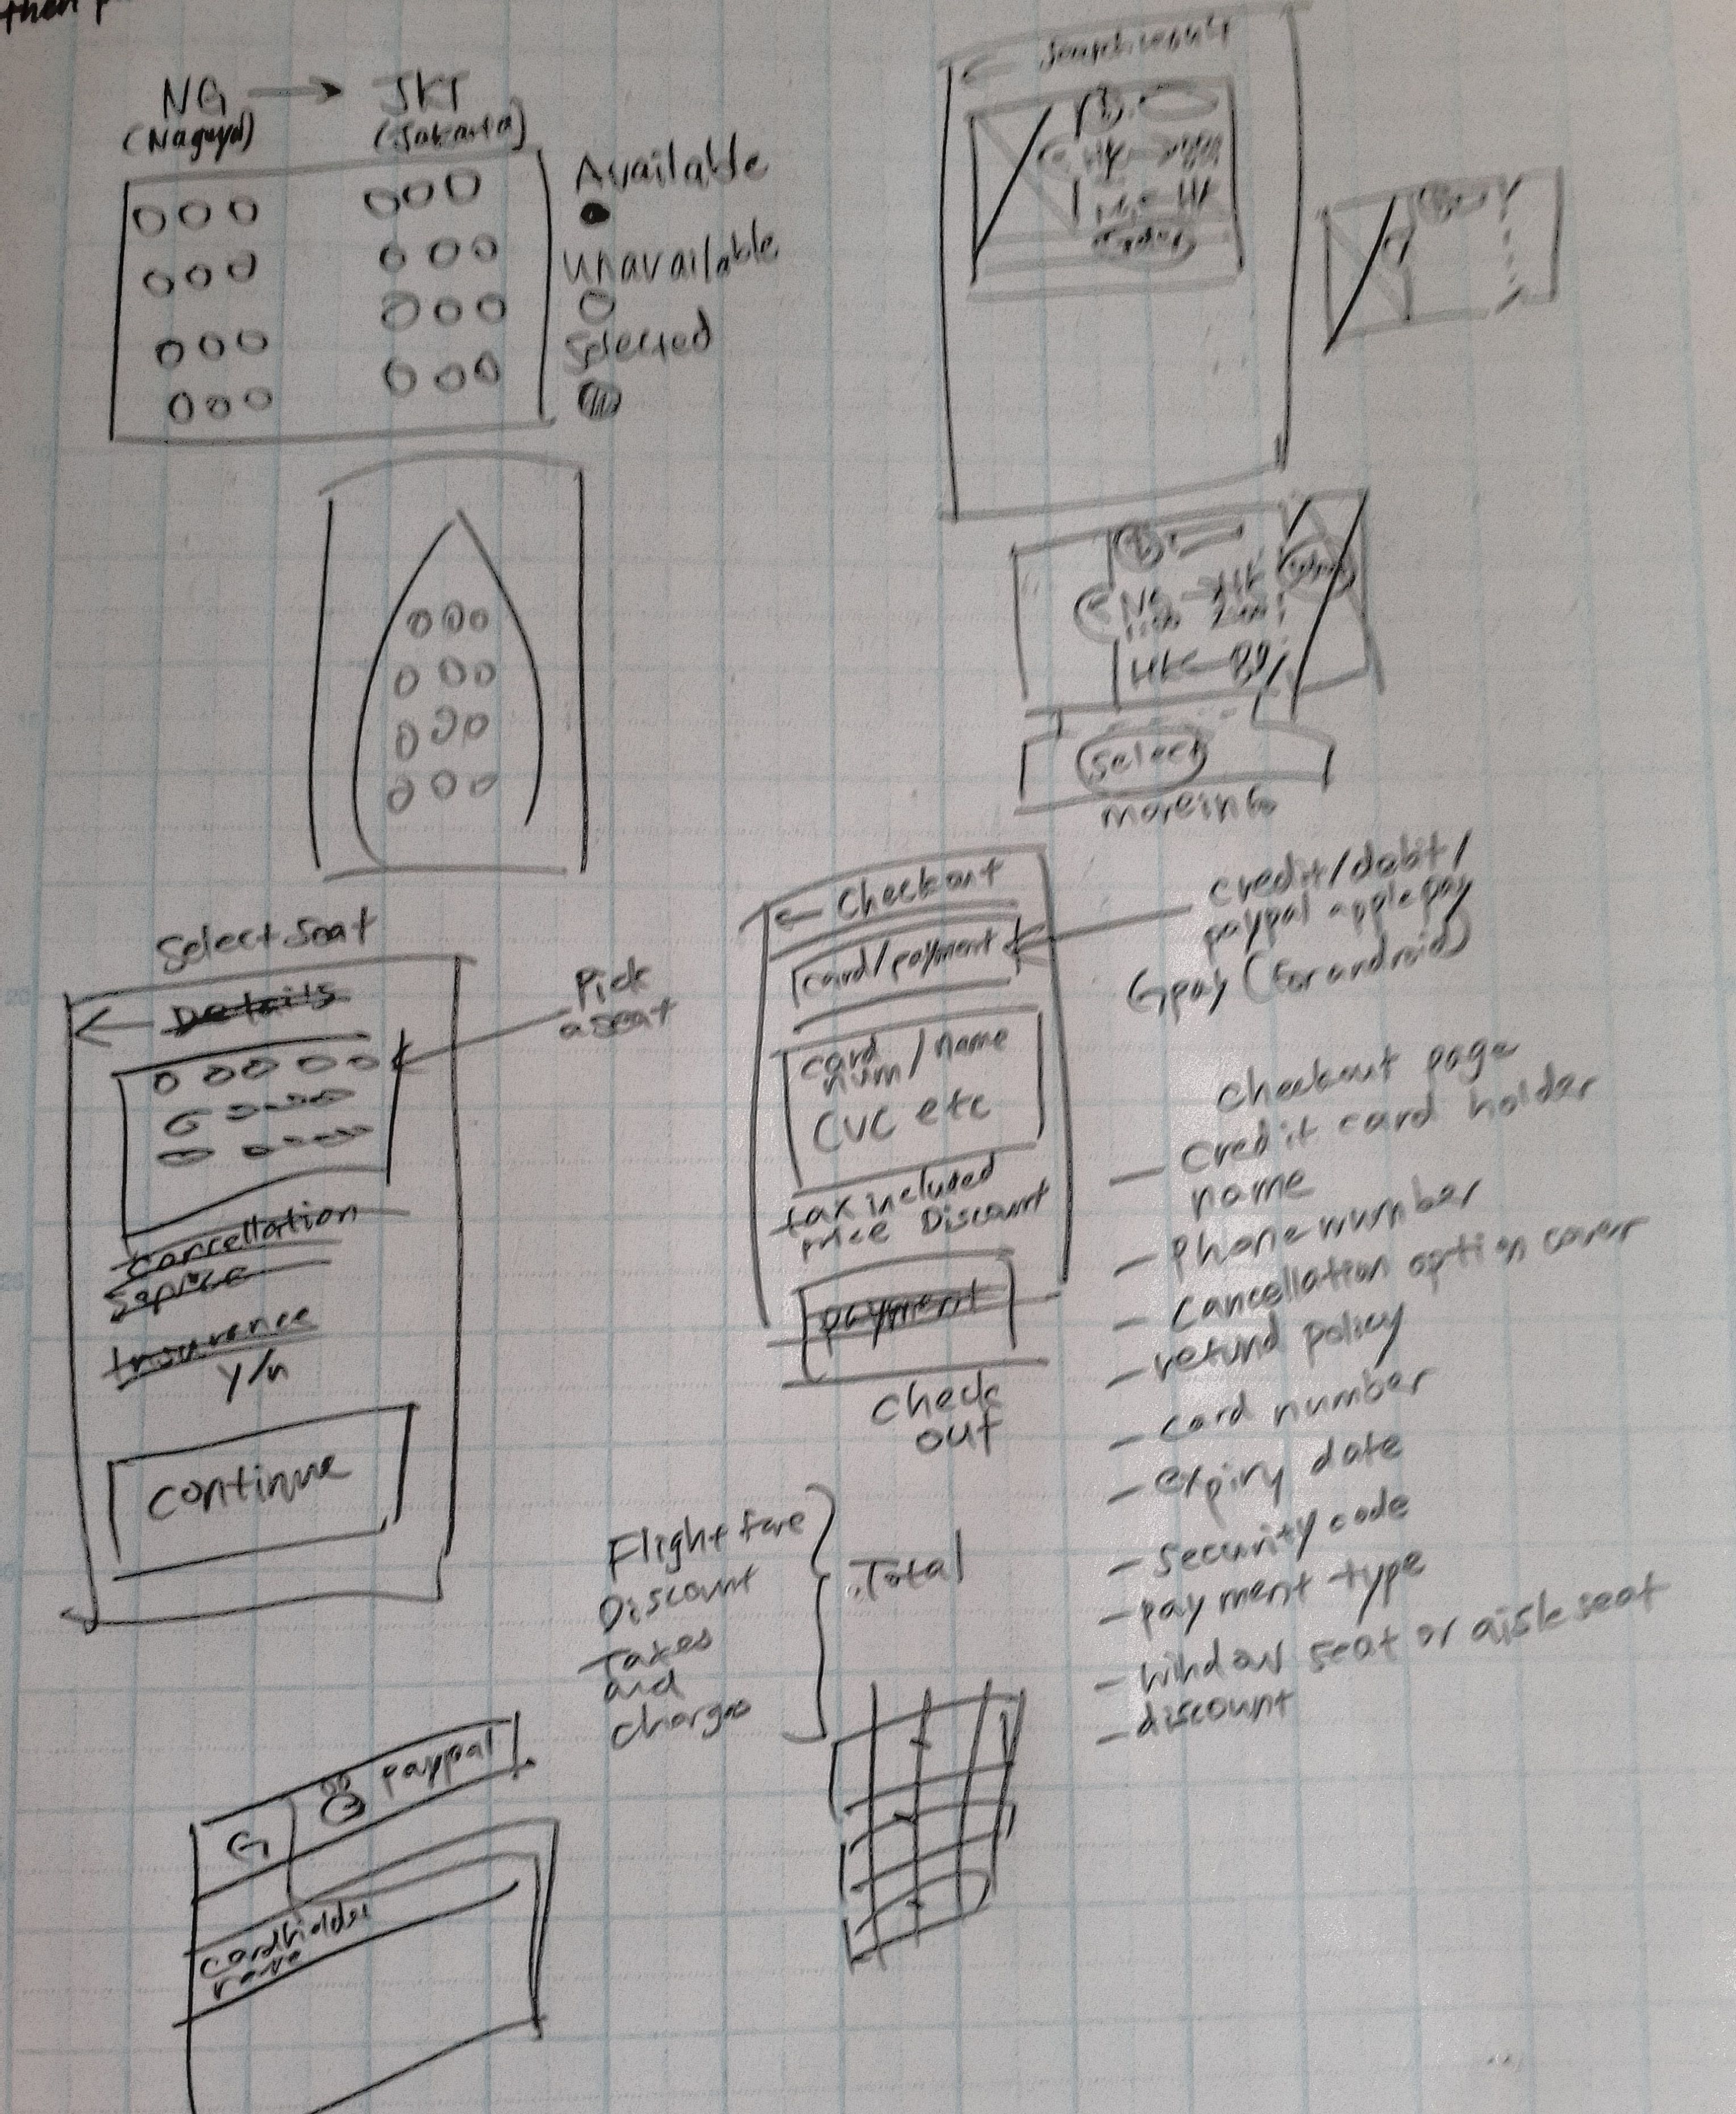 then p
NG → JKT
(Nagoya) (Jakarta)
Available
unavailable
Selected
← Search result
NG → HK
1100 2000
HK
Select
more info
Select Seat
← Details
Pick
a seat
Cancellation
Service
Insurence
Y/n
Continue
← Checkout
card/payment
card
num / name
CVC etc
tax included
price Discount
payment
check
out
credit/debit/
paypal applepay
Gpay (for android)
checkout page
- credit card holder
name
- phone number
- cancellation option cover
- refund policy
- card number
- expiry date
- security code
- payment type
- window seat or aisle seat
- discount
Flight fare
Discount
Taxes
and
charges
Total
G
paypal
cardholder
name